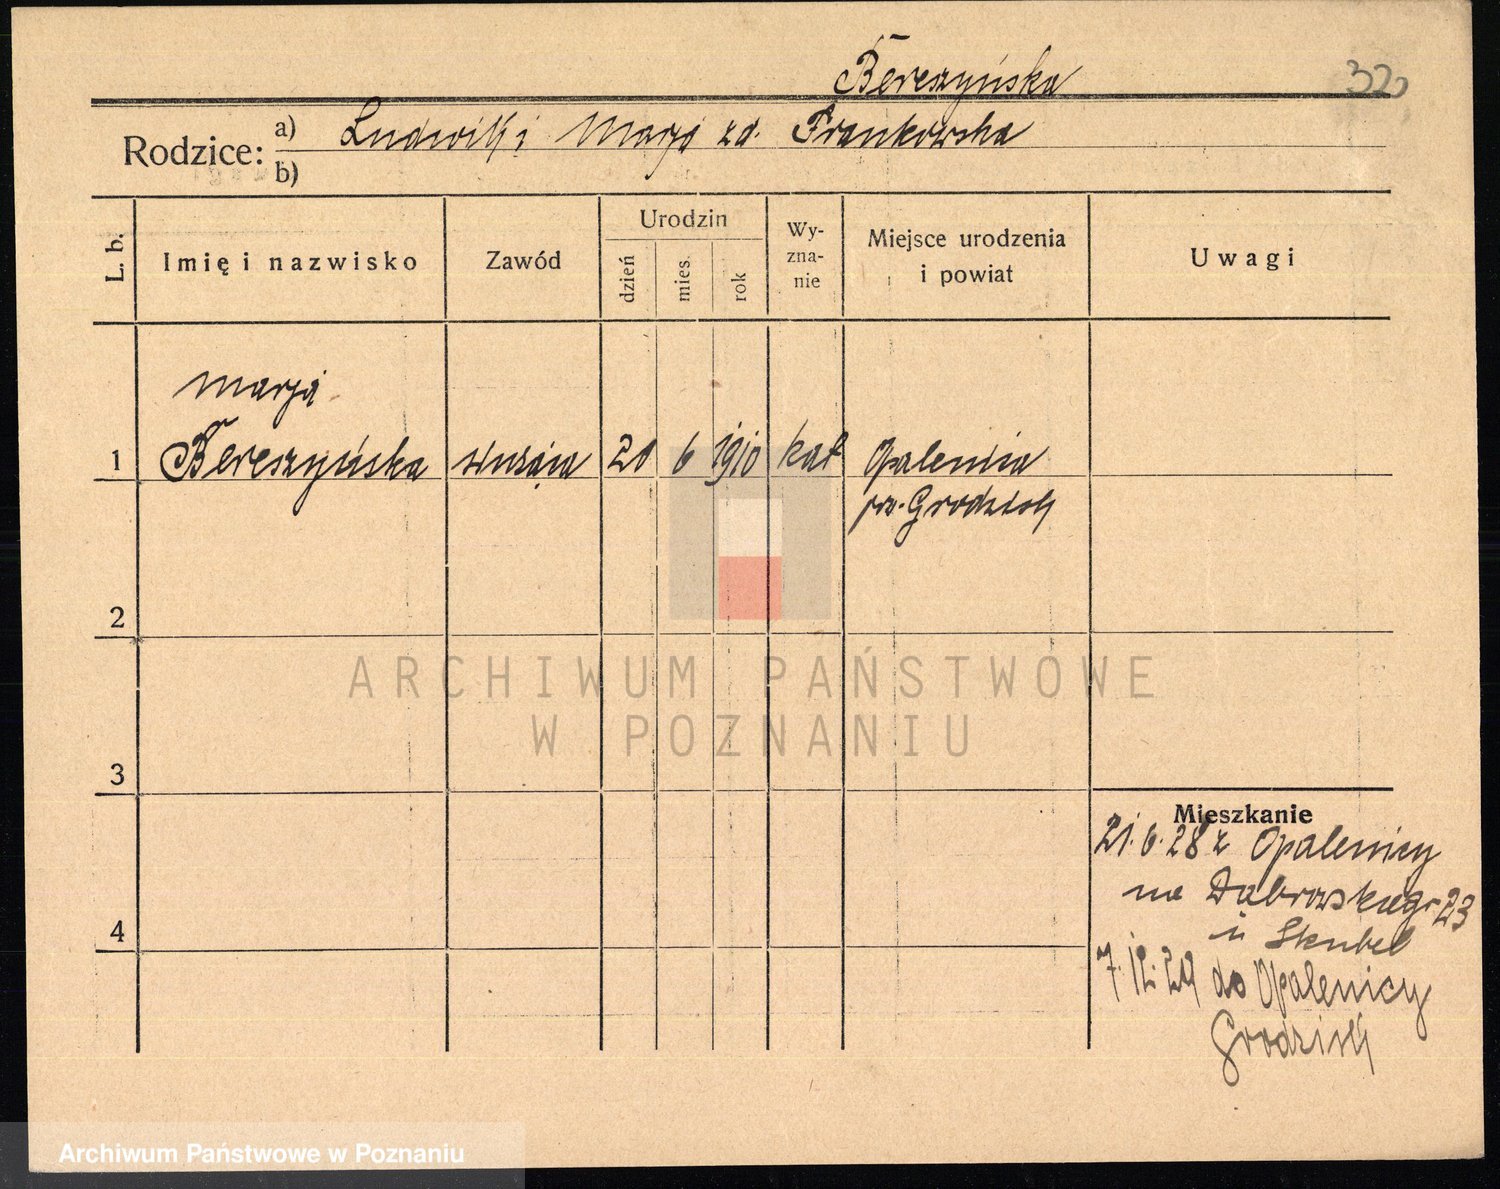 Bereszyńska
320
Rodzice: a) Ludwik i Marja zd. Frankowska
b)
L. b.
Imię i nazwisko
Zawód
Urodzin
dzień
mies.
rok
Wy-
zna-
nie
Miejsce urodzenia
i powiat
Uwagi
Marja
1 Bereszyńska służąca 20 6 1910 kat Opalenica
pow. Grodzisk
2
3
4
Mieszkanie
21.6.28 z Opalenicy
na Dąbrowskiego 23
u
7.12.29 do Opalenicy
Grodzisk
ARCHIWUM PAŃSTWOWE
W POZNANIU
Archiwum Państwowe w Poznaniu